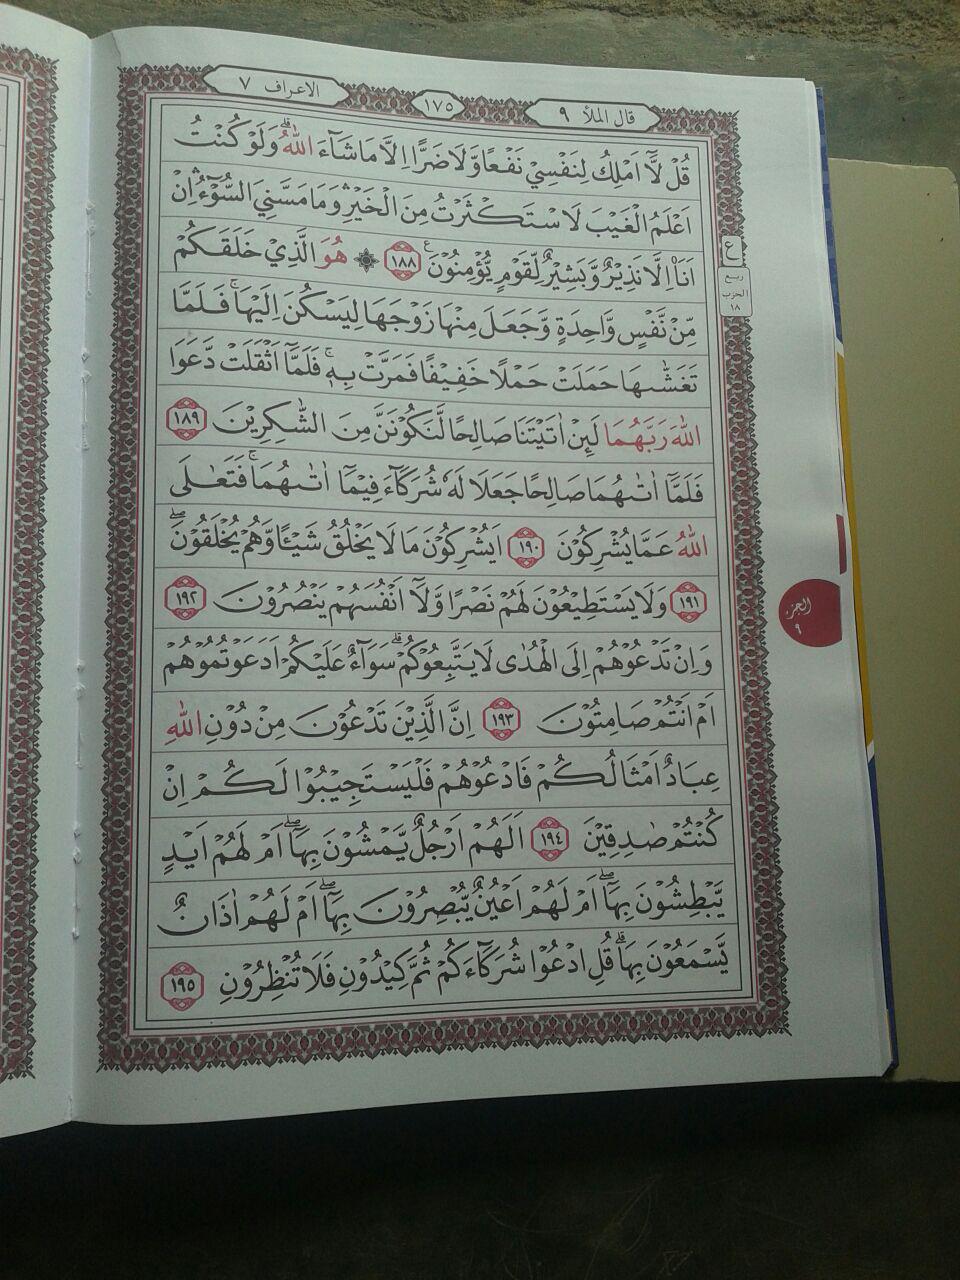 قال الملأ ٩
١٧٥
الاعراف ٧
قُلْ لَّآ اَمْلِكُ لِنَفْسِيْ نَفْعًا وَّلَا ضَرًّا اِلَّا مَا شَاۤءَ اللّٰهُ ۗوَلَوْ كُنْتُ
اَعْلَمُ الْغَيْبَ لَاسْتَكْثَرْتُ مِنَ الْخَيْرِۛ وَمَا مَسَّنِيَ السُّوْۤءُ ۛاِنْ
اَنَا۠ اِلَّا نَذِيْرٌ وَّبَشِيْرٌ لِّقَوْمٍ يُّؤْمِنُوْنَ ࣖ ١٨٨ ۞ هُوَ الَّذِيْ خَلَقَكُمْ
مِّنْ نَّفْسٍ وَّاحِدَةٍ وَّجَعَلَ مِنْهَا زَوْجَهَا لِيَسْكُنَ اِلَيْهَاۚ فَلَمَّا
تَغَشّٰىهَا حَمَلَتْ حَمْلًا خَفِيْفًا فَمَرَّتْ بِهٖ ۚ فَلَمَّآ اَثْقَلَتْ دَّعَوَا
اللّٰهَ رَبَّهُمَا لَىِٕنْ اٰتَيْتَنَا صَالِحًا لَّنَكُوْنَنَّ مِنَ الشّٰكِرِيْنَ ١٨٩
فَلَمَّآ اٰتٰىهُمَا صَالِحًا جَعَلَا لَهٗ شُرَكَاۤءَ فِيْمَآ اٰتٰىهُمَا ۚفَتَعٰلَى
اللّٰهُ عَمَّا يُشْرِكُوْنَ ١٩٠ اَيُشْرِكُوْنَ مَا لَا يَخْلُقُ شَيْـًٔا وَّهُمْ يُخْلَقُوْنَۖ
١٩١ وَلَا يَسْتَطِيْعُوْنَ لَهُمْ نَصْرًا وَّلَآ اَنْفُسَهُمْ يَنْصُرُوْنَ ١٩٢
وَاِنْ تَدْعُوْهُمْ اِلَى الْهُدٰى لَا يَتَّبِعُوْكُمْۗ سَوَاۤءٌ عَلَيْكُمْ اَدَعَوْتُمُوْهُمْ
اَمْ اَنْتُمْ صَامِتُوْنَ ١٩٣ اِنَّ الَّذِيْنَ تَدْعُوْنَ مِنْ دُوْنِ اللّٰهِ
عِبَادٌ اَمْثَالُكُمْ فَادْعُوْهُمْ فَلْيَسْتَجِيْبُوْا لَكُمْ اِنْ
كُنْتُمْ صٰدِقِيْنَ ١٩٤ اَلَهُمْ اَرْجُلٌ يَّمْشُوْنَ بِهَآ ۖ اَمْ لَهُمْ اَيْدٍ
يَّبْطِشُوْنَ بِهَآ ۖ اَمْ لَهُمْ اَعْيُنٌ يُّبْصِرُوْنَ بِهَآ ۖ اَمْ لَهُمْ اٰذَانٌ
يَّسْمَعُوْنَ بِهَاۗ قُلِ ادْعُوْا شُرَكَاۤءَكُمْ ثُمَّ كِيْدُوْنِ فَلَا تُنْظِرُوْنِ ١٩٥
ع
ربع
الحزب
١٨
الجزء
٩